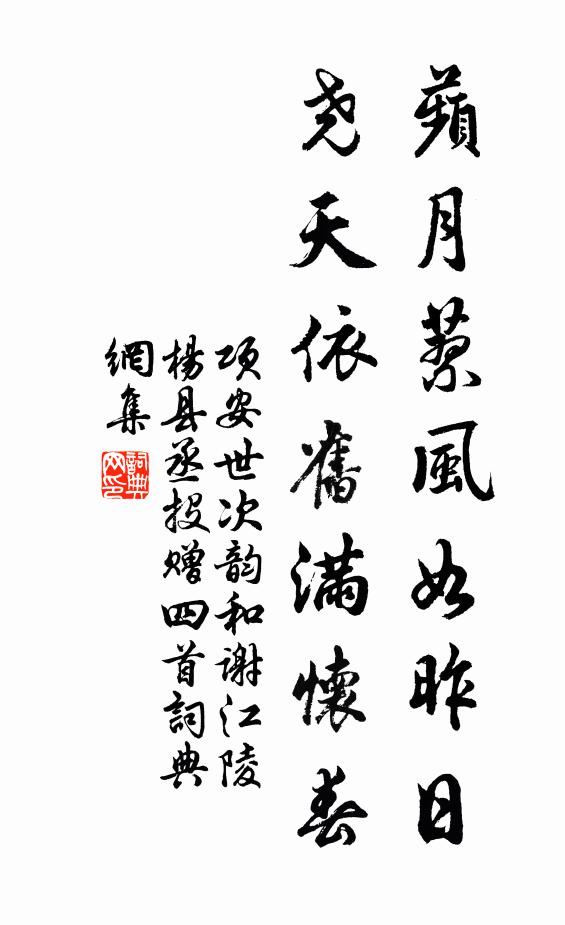 蘋月蔡風如昨日
尧天依舊滿懷春
項安世次韵和謝江陵
楊县丞投贈四首詞典
網集
詞典
网印